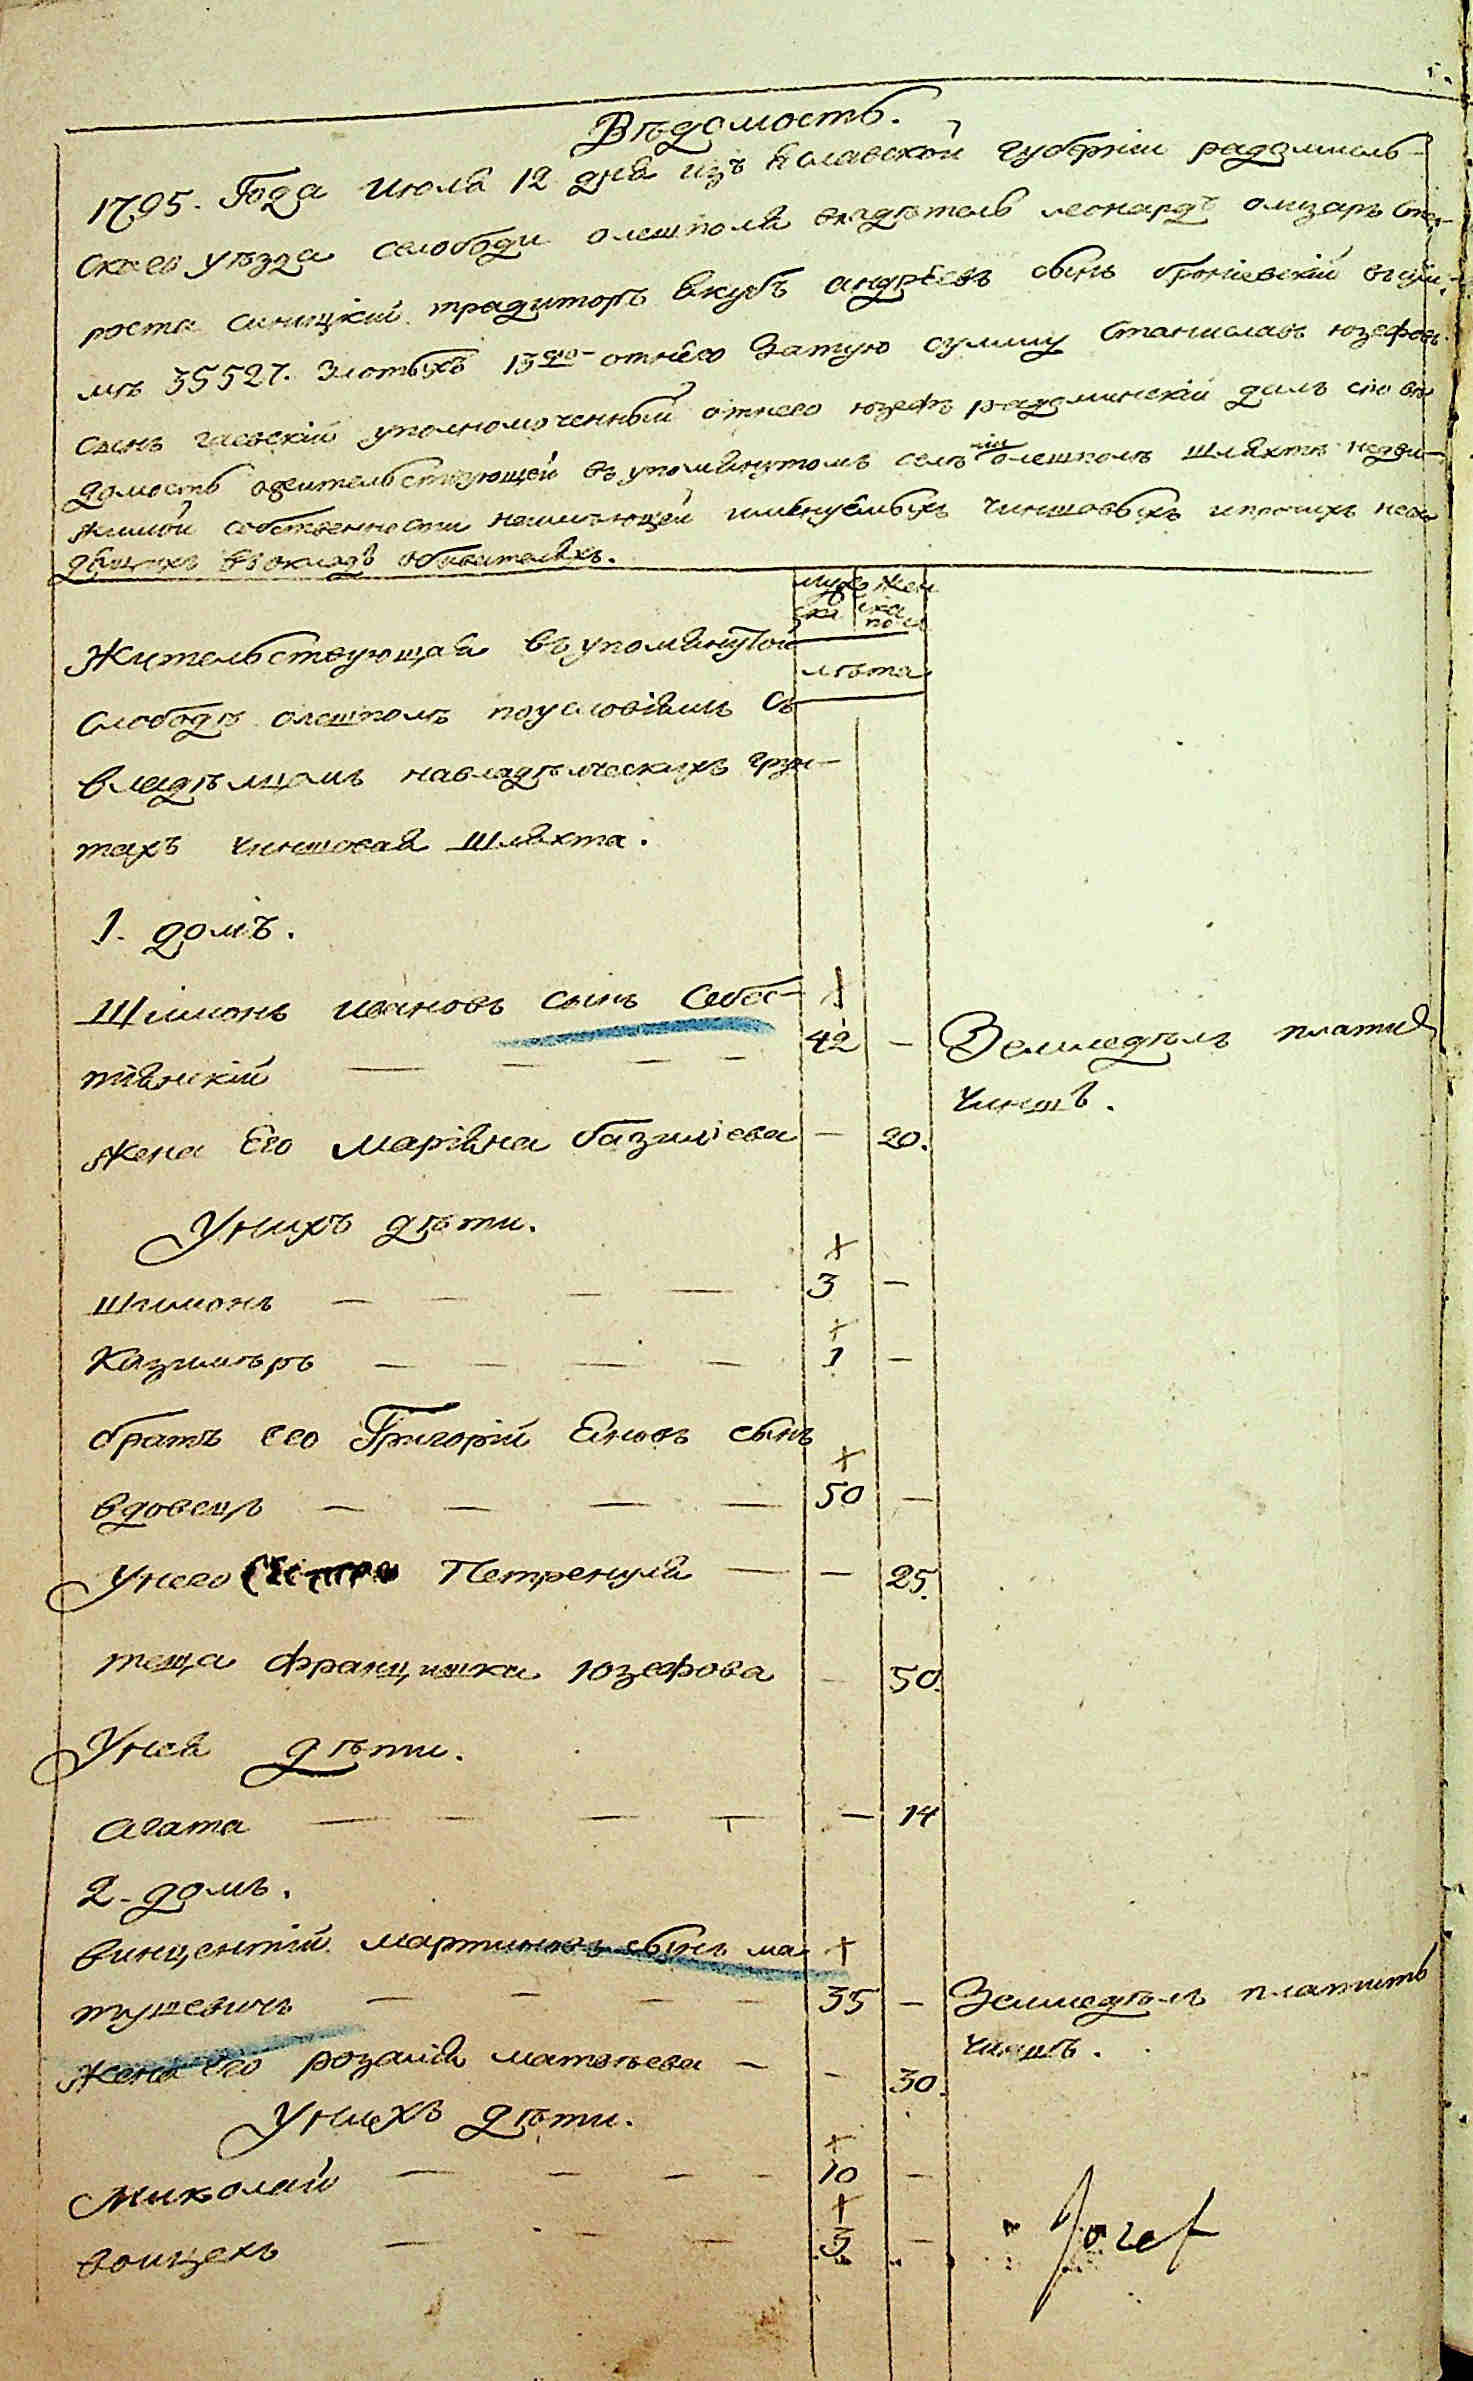 Вѣдомость.
1795. Года Июля 12 дня изъ Иславской губернии радомысль-
скаго уѣзда слободи олешполя владѣтель леонардъ олизаръ Ста-
роста синицкий традиторъ Якубъ андрѣевъ сынъ броніевскій въ сум-
мѣ 35527. Злотыхъ 13 отнего Затую сумму Станиславъ юзефовъ
сынъ гаевскій уполномоченный отнего юзефъ радоминскій далъ сію вѣ
домость о жительствующей въ упомянутомъ селѣ олешполѣ шляхтѣ недви-
жимой собственности неимѣющей именуемыхъ чиншовыхъ ипрочихъ
въ окладъ обывателяхъ.
муже ска
жен ска пола
лѣта
Жительствующая въ упомянутой
слободѣ олешполѣ поусловіямъ Съ
владѣльцомъ навладѣльческихъ грун-
тахъ чиншовая шляхта.
1. домъ.
Шимонъ ивановъ сынъ Себес-
тиянскій — — — 42 — Земледѣлъ платит
чиншъ.
жена Его марияна базиліева — 20.
Унихъ дѣти.
шимонъ — — — — 3 —
казимѣръ — — — — 1 —
братъ его Григорій Яновъ сынъ
вдовецъ — — — — 50 —
Унего Петренуля — — 25.
теща францишка юзефова — 50.
Унея дѣти.
агата — — — — — 14
2. домъ.
винцентій мартиновъ сынъ ма
тушевичъ — — — — 35 — Земледѣлъ платитъ
чиншъ.
жена его розалия матвѣева — — 30.
Унихъ дѣти.
Миколай — — — — 10 —
воицехъ — — — 5 —
Jozef